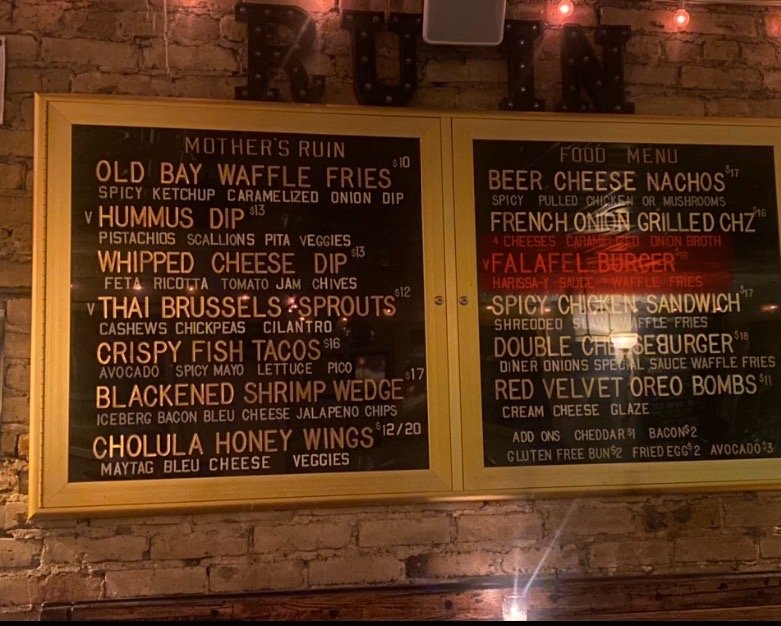 RUIN
MOTHER'S RUIN
OLD BAY WAFFLE FRIES $10
SPICY KETCHUP CARAMELIZED ONION DIP
V HUMMUS DIP $13
PISTACHIOS SCALLIONS PITA VEGGIES
WHIPPED CHEESE DIP $13
FETA RICOTTA TOMATO JAM CHIVES
V THAI BRUSSELS SPROUTS $12
CASHEWS CHICKPEAS CILANTRO
CRISPY FISH TACOS $16
AVOCADO SPICY MAYO LETTUCE PICO
BLACKENED SHRIMP WEDGE $17
ICEBERG BACON BLEU CHEESE JALAPENO CHIPS
CHOLULA HONEY WINGS $12/20
MAYTAG BLEU CHEESE VEGGIES
FOOD MENU
BEER CHEESE NACHOS $17
SPICY PULLED CHICKEN OR MUSHROOMS
FRENCH ONION GRILLED CHZ $16
4 CHEESES CARAMELIZED ONION BROTH
V FALAFEL BURGER $16
HARISSA-Y SAUCE WAFFLE FRIES
SPICY CHICKEN SANDWICH $17
SHREDDED WAFFLE FRIES
DOUBLE CHEESEBURGER $18
DINER ONIONS SPECIAL SAUCE WAFFLE FRIES
RED VELVET OREO BOMBS $11
CREAM CHEESE GLAZE
ADD ONS CHEDDAR $1 BACON $2
GLUTEN FREE BUN $2 FRIED EGG $2 AVOCADO $3